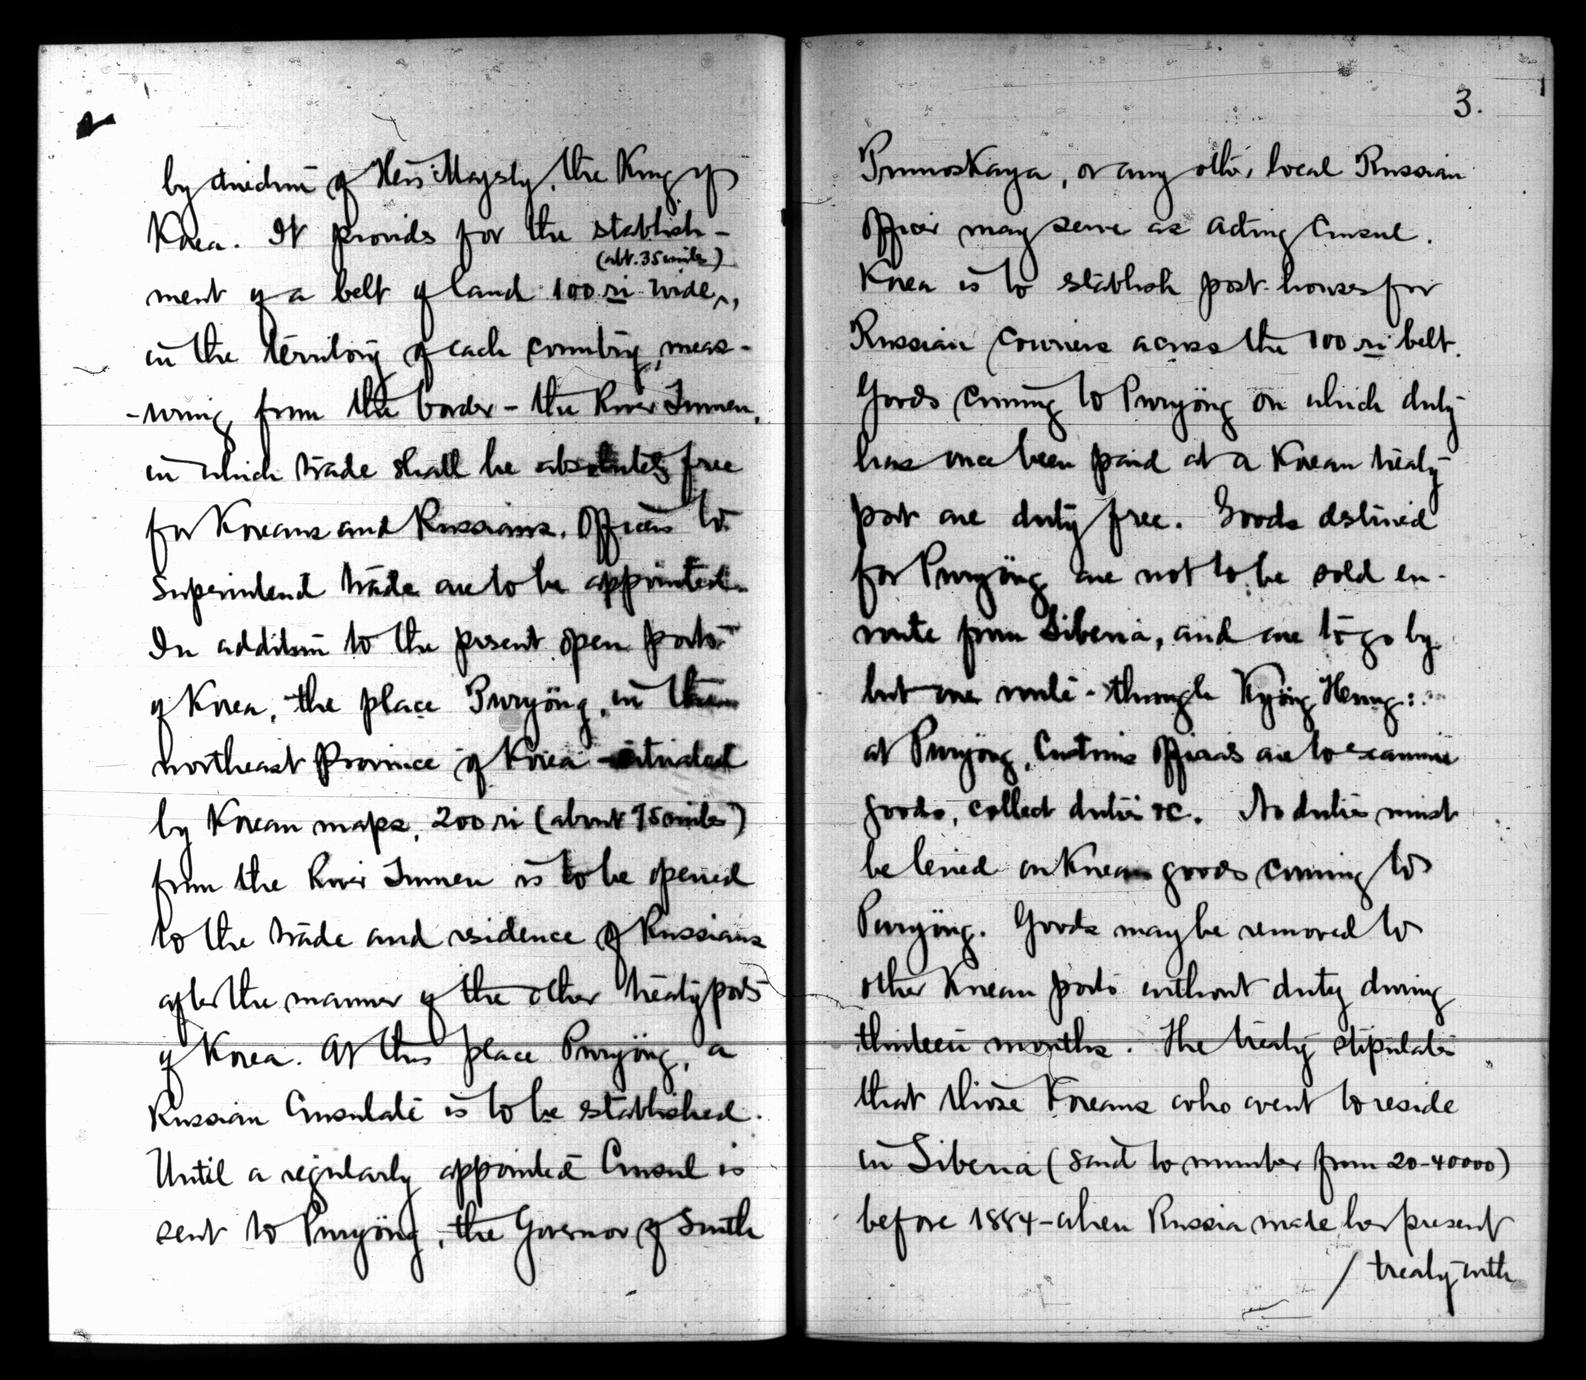 by direction of His Majesty, the King of
Korea. It provides for the establish-
(abt. 35 miles)
ment of a belt of land 100 ri wide,
in the territory of each country, meas-
-uring from the border - the River Tumen,
in which trade shall be absolutely free
for Koreans and Russians. Officers to
Superintend trade are to be appointed.
In addition to the present open ports
of Korea, the place Puryöng, in the
northeast Province of Korea situated
by Korean maps, 200 ri (about 75 miles)
from the River Tumen is to be opened
to the trade and residence of Russians
after the manner of the other treaty ports
of Korea. At this place Puryöng, a
Russian Consulate is to be established.
Until a regularly appointed Consul is
sent to Puryöng, the Governor of South
3.
Primorskaya, or any other local Russian
officer may serve as Acting Consul.
Korea is to establish post-houses for
Russian Couriers across the 100 ri belt.
Goods coming to Puryöng on which duty
has once been paid at a Korean treaty
port are duty free. Goods destined
for Puryöng are not to be sold en-
route from Siberia, and are to go by
but one route - through Kyöng Heung:
at Puryöng, Customs officers are to examine
goods, collect duties &c. No duties must
be levied on Korean goods coming to
Puryöng. Goods may be removed to
other Korean ports without duty during
thirteen months. The treaty stipulates
that those Koreans who went to reside
in Siberia (said to number from 20-40000)
before 1884 - when Russia made her present
/ treaty with